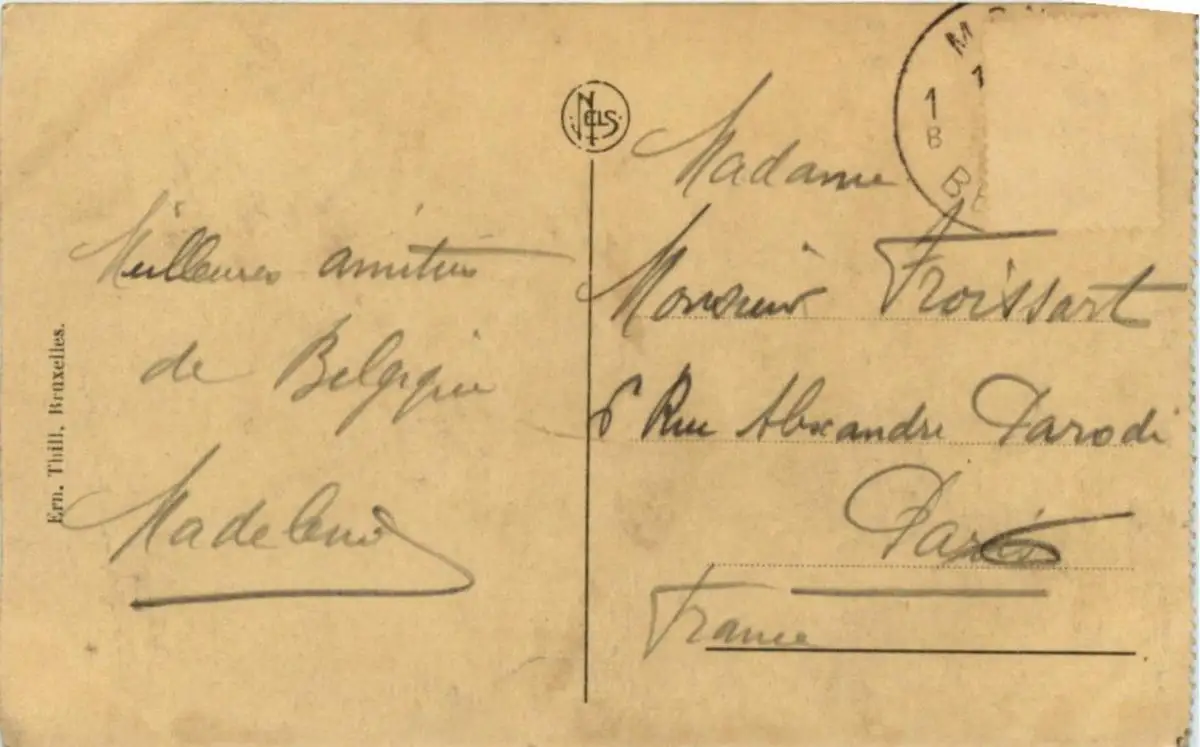 Meilleures amitiés
de Belgique
Madeleine
Ern. Thill, Bruxelles.
NELS
Madame
Monsieur Froissart
6 Rue Alexandre Parodi
Paris
France
1
B